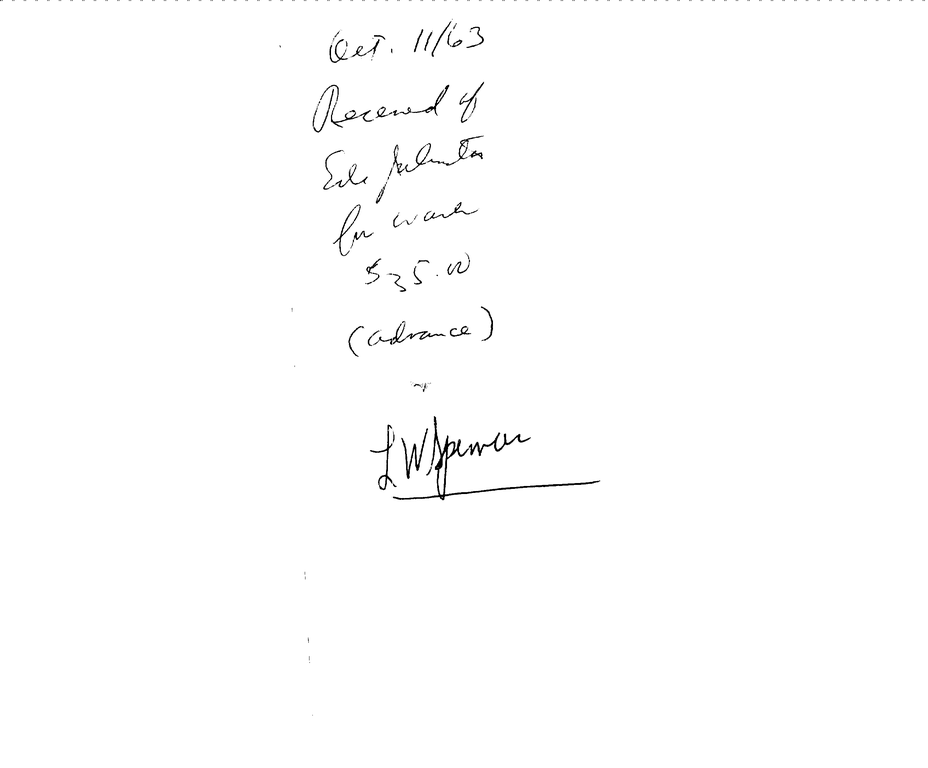 Oct. 11/63
Received of
Johnston
for work
$35.00
(advance)
L W Spencer